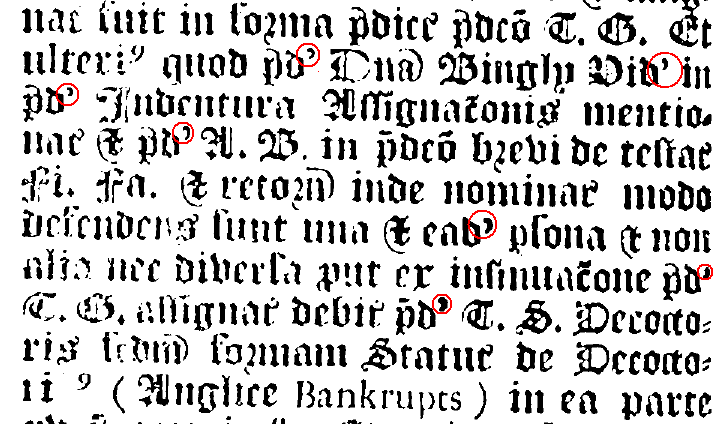 nat fuit in forma p̄dict p̄dcõ T. G. Et
ulteri⁹ quod p̄d’ Dna͞ Bingly Vid’ in
p̄d’ Indentura Assignac̃onis mentio-
nat & p̄d’ A. B. in p̄dcõ brevi de testat
Fi. Fa. & retorn͞ inde nominat modo
defendens sunt una & ead’ p̱sona & non
alia nec diversa ꝓut ex insinuac̃one p̄d’
T. G. assignat debit p̄d’ T. S. Decocto-
ris scdm͞ formam Statut de Decocto-
ri⁹ ( Anglice Bankrupts ) in ea parte